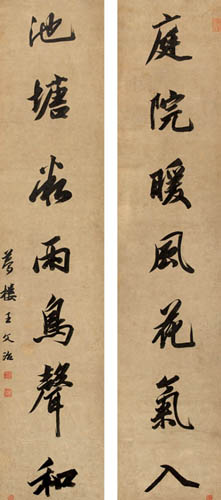 庭院暖風花氣入
池塘微雨鳥聲和
夢樓王文治